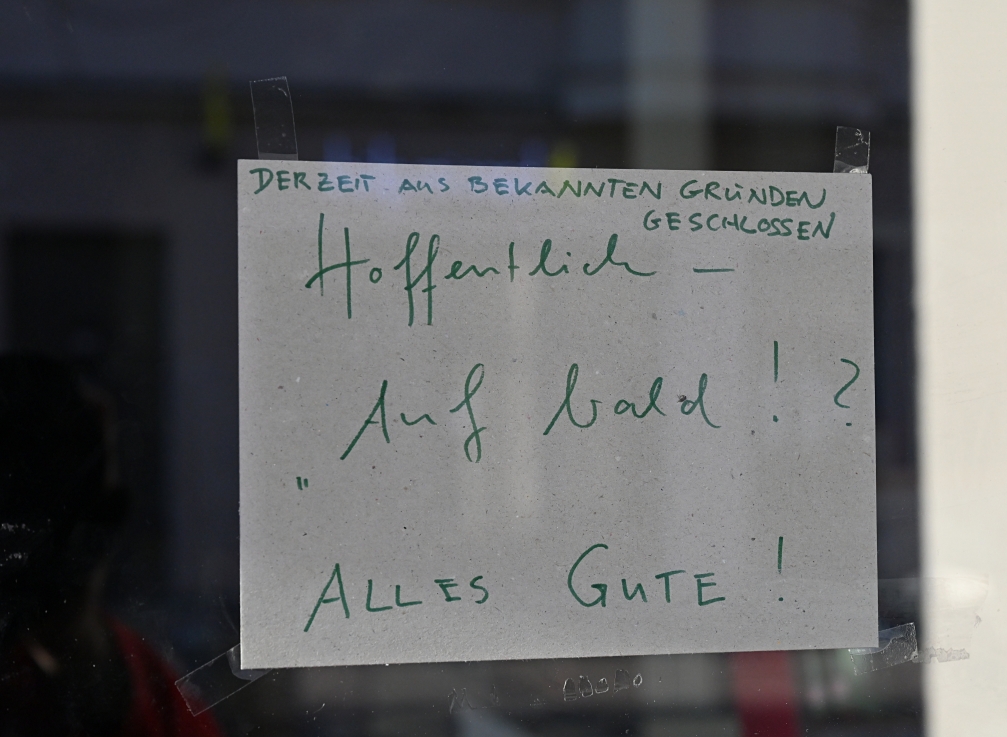 DERZEIT AUS BEKANNTEN GRÜNDEN
GESCHLOSSEN
Hoffentlich –
„Auf bald ! ?
ALLES GUTE !